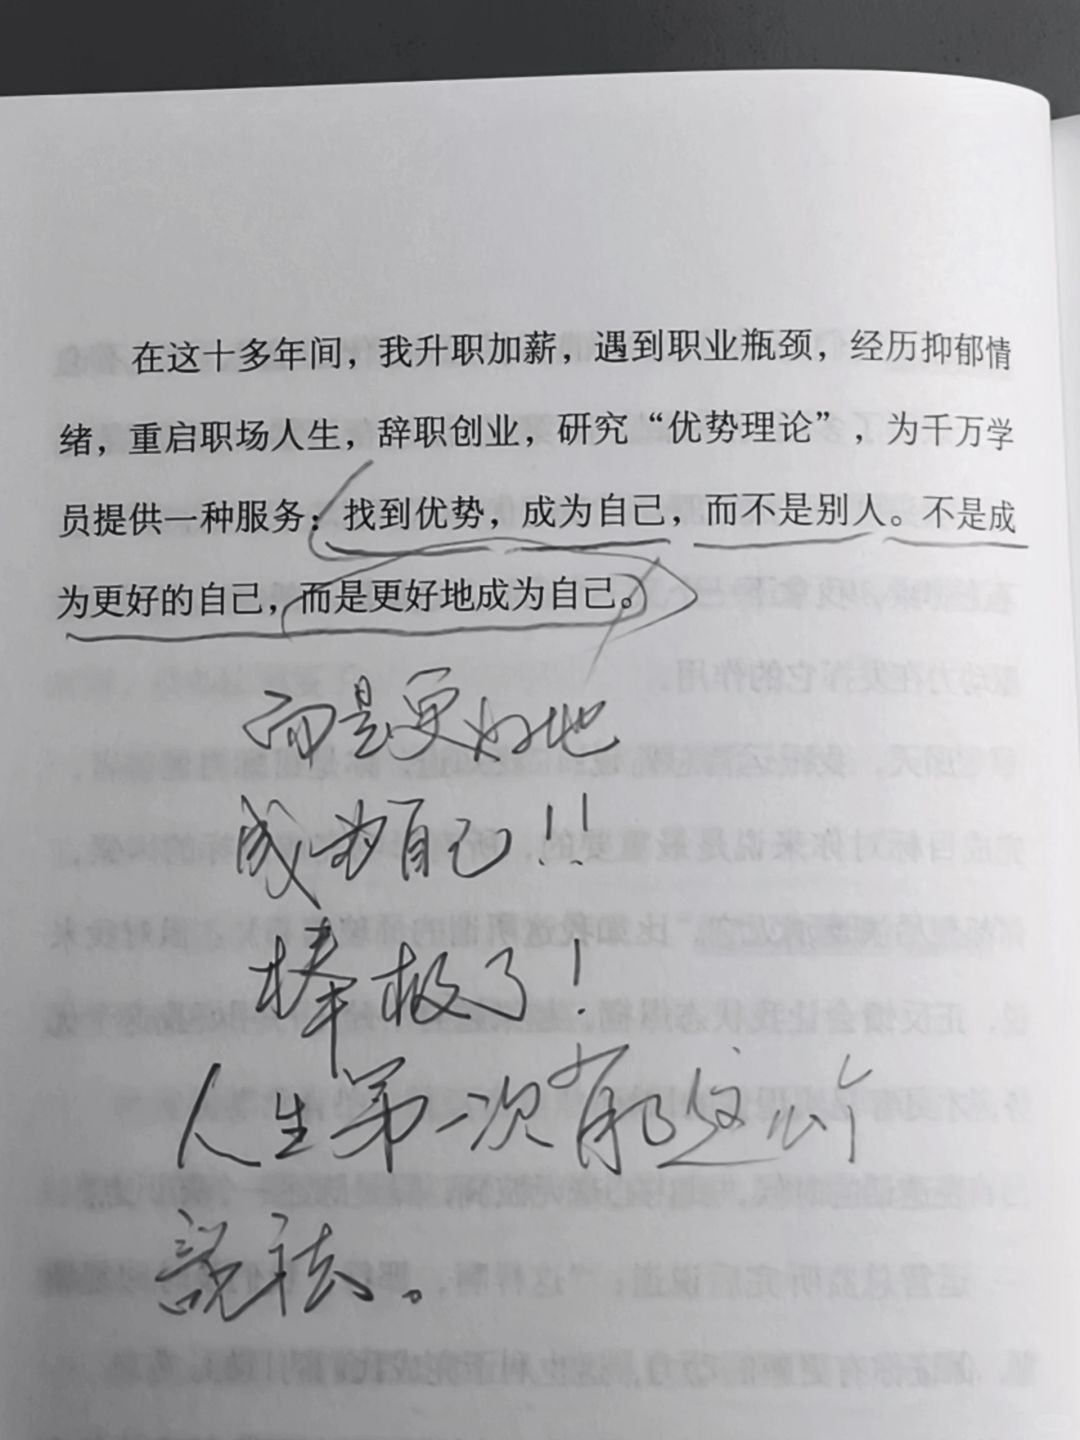 在这十多年间，我升职加薪，遇到职业瓶颈，经历抑郁情
绪，重启职场人生，辞职创业，研究“优势理论”，为千万学
员提供一种服务：找到优势，成为自己，而不是别人。不是成
为更好的自己，而是更好地成为自己。
而是更好地
成为自己!!
棒极了!
人生第一次有这个
说法。